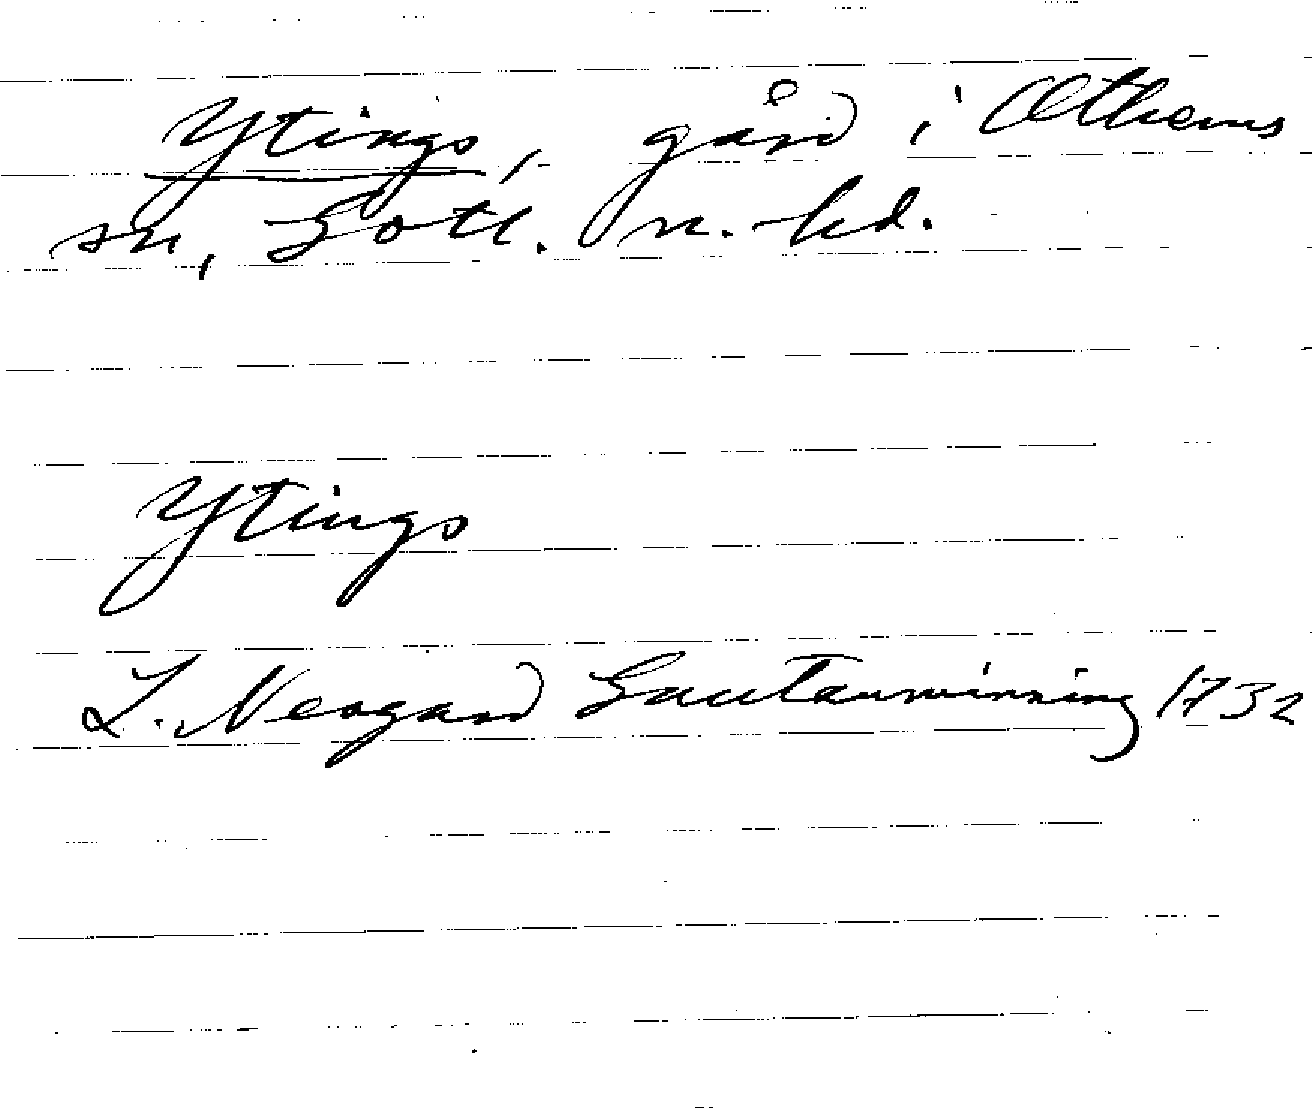 Ytings, gård i Othems
sn, Gotl. n. hd.
Ytings
L. Neogard Gautauminning 1732